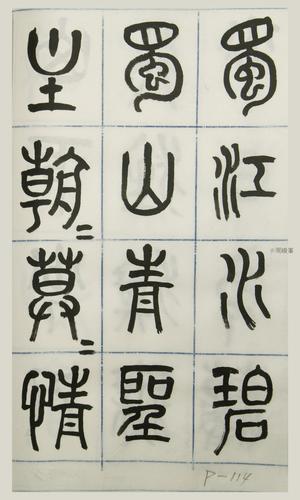 蜀江水碧
蜀山青聖
主朝〻暮〻情
P-114